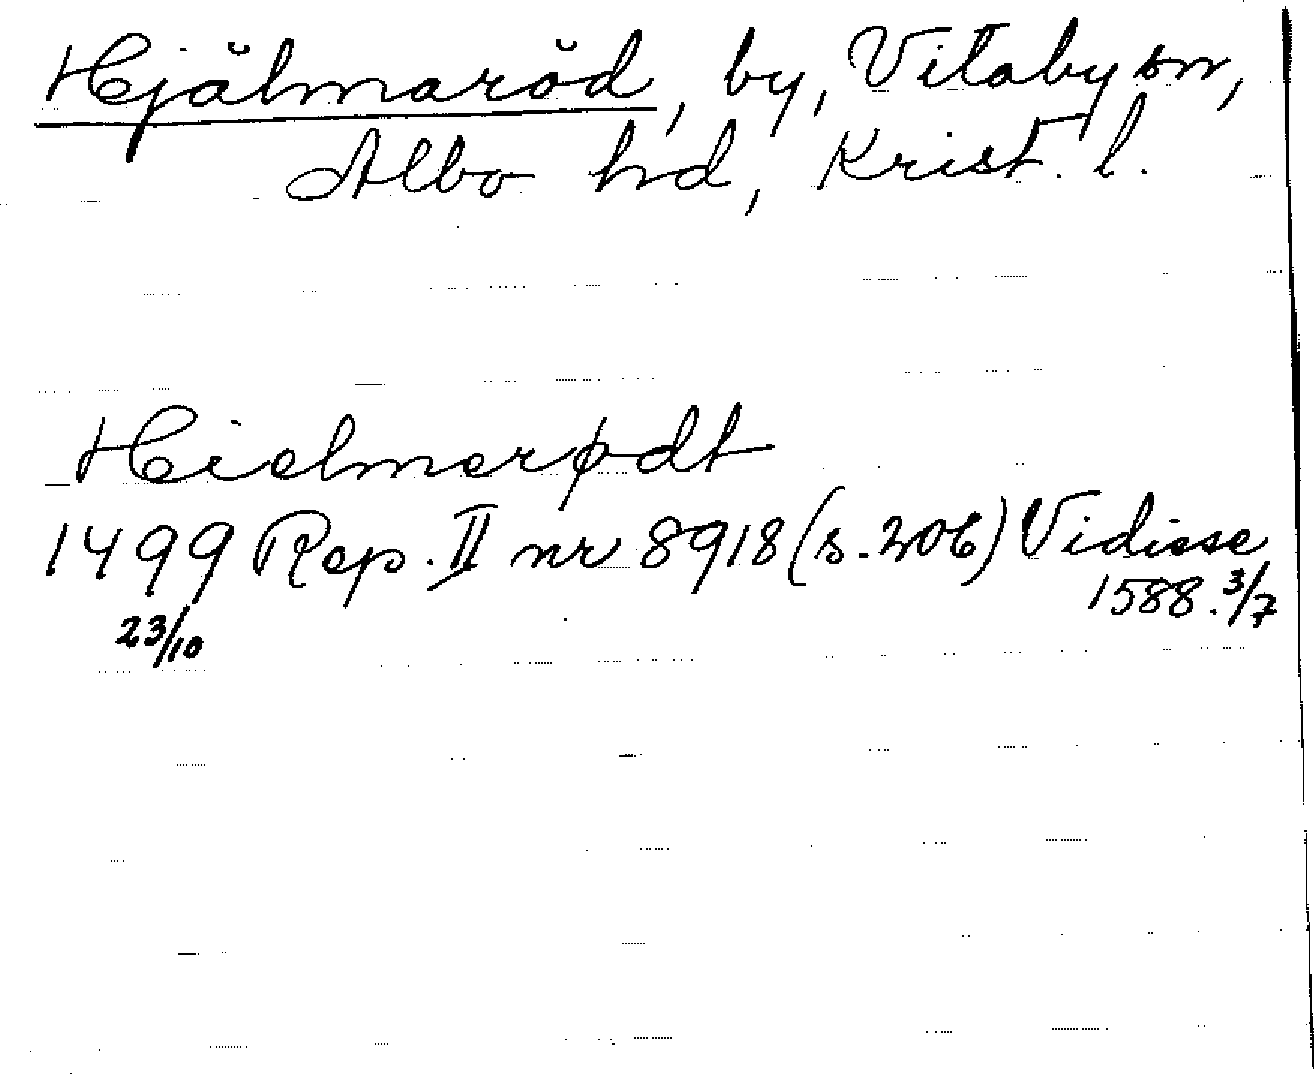 Hjälmaröd, by, Vitaby sn,
Albo hd, Krist. l.
Hielmerødt
1499 Rep. II nr 8918 (s. 206) Vidisse
23/10 1588. 3/7